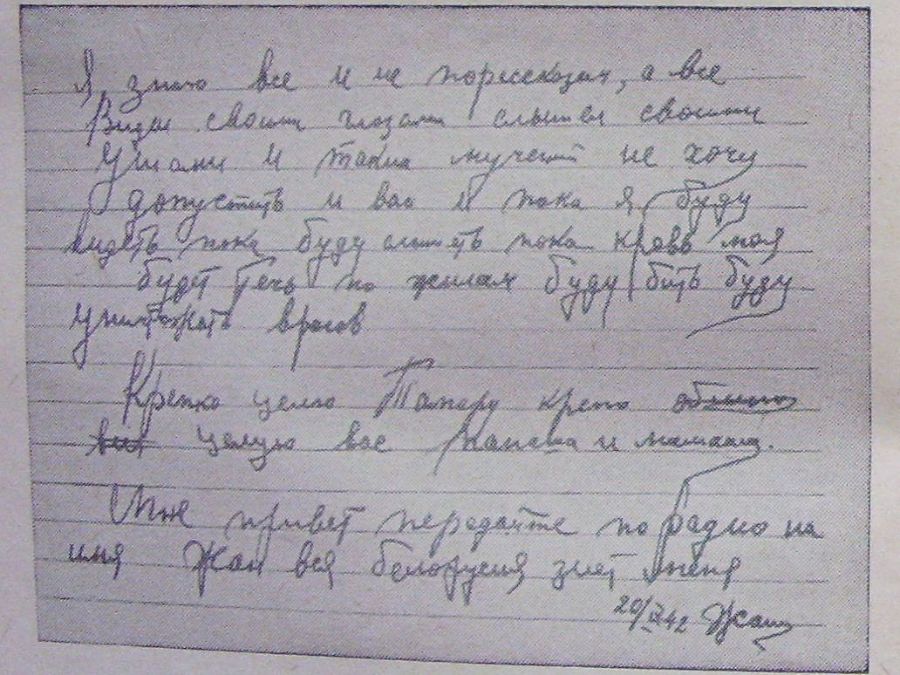 Я знаю все и не порассказам, а все
видел своими глазами слышал своими
ушами и таких мучений не хочу
допустить и вас и пока я буду
видеть пока буду слышать пока кровь моя
будет течь по жилам буду бить буду
уничтожать врагов
Крепко целую Тамару крепко обнимаю
вас целую вас папаша и мамаша.
Мне привет передайте по радио на
имя Жан вся белорусия знает меня
20/IX 42 Жан